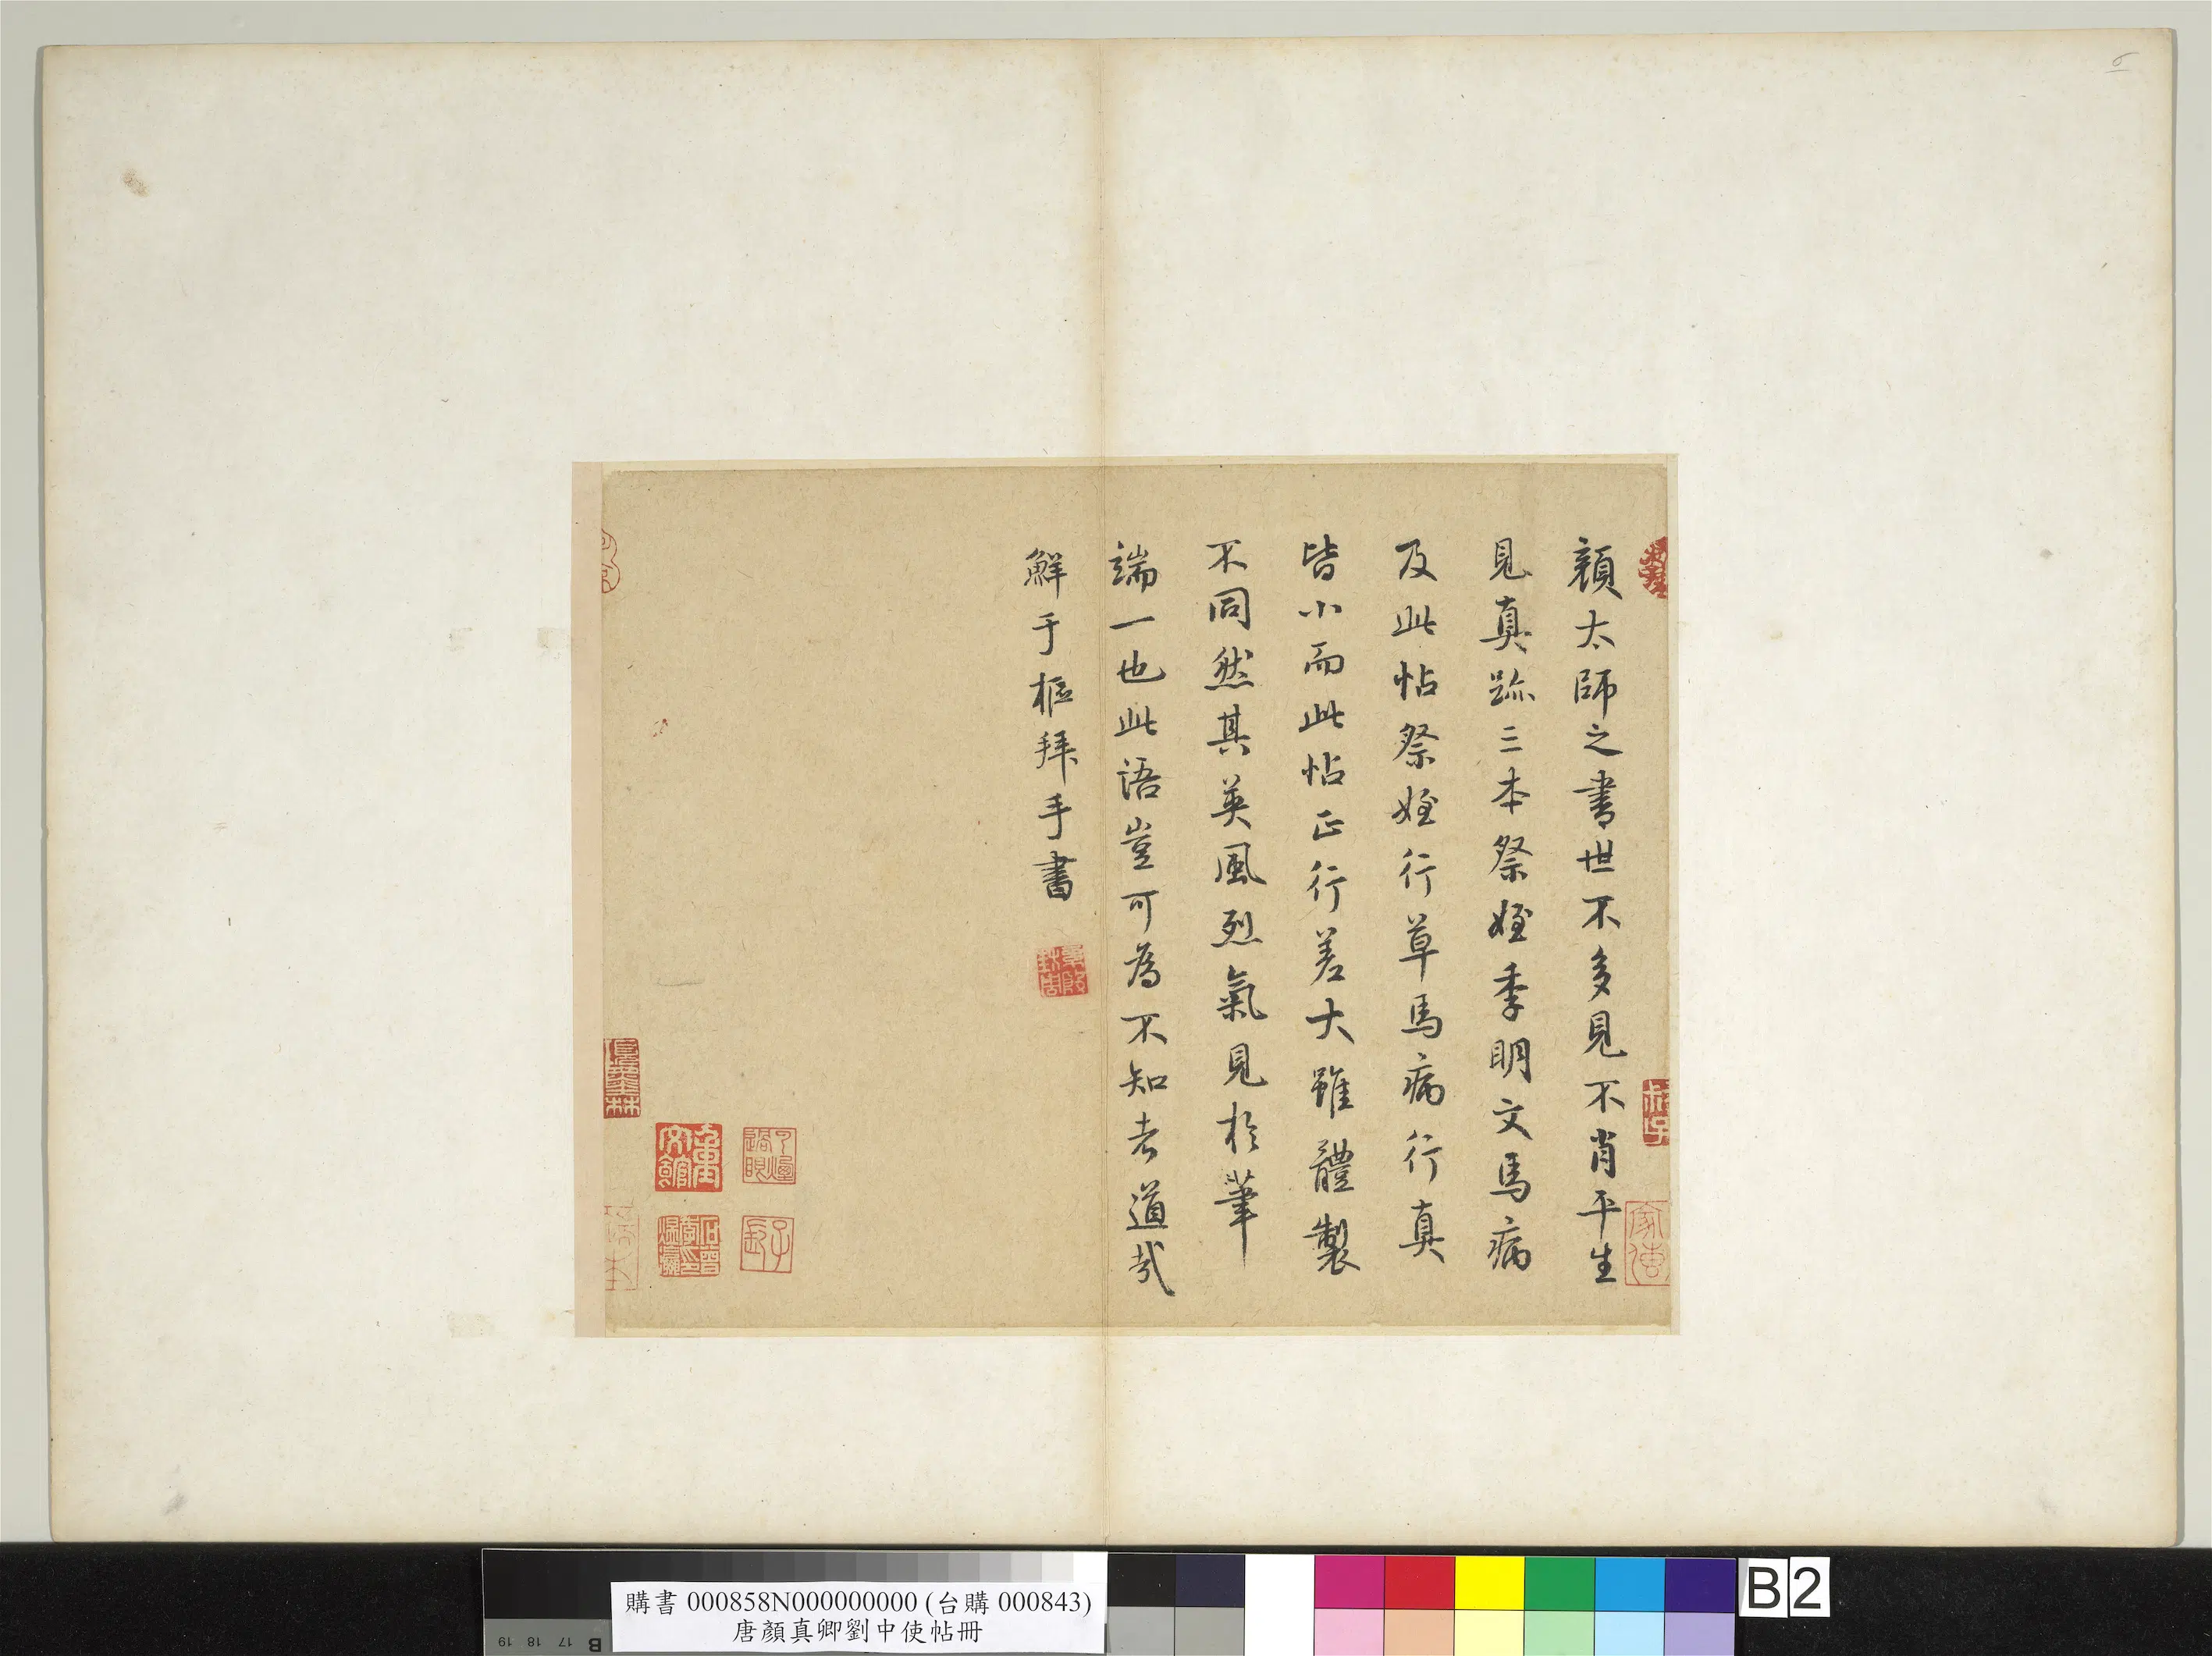 顏太師之書世不多見不肖平生
見真跡三本祭姪季明文馬病
及此帖祭姪行草馬病行真
皆小而此帖正行差大雖體製
不同然其英風烈氣見於筆
端一也此語豈可為不知者道哉
鮮于樞拜手書
家傳
子長
購書 000858N000000000 (台購 000843)
唐顏真卿劉中使帖冊
B 17 18 19
B2
6